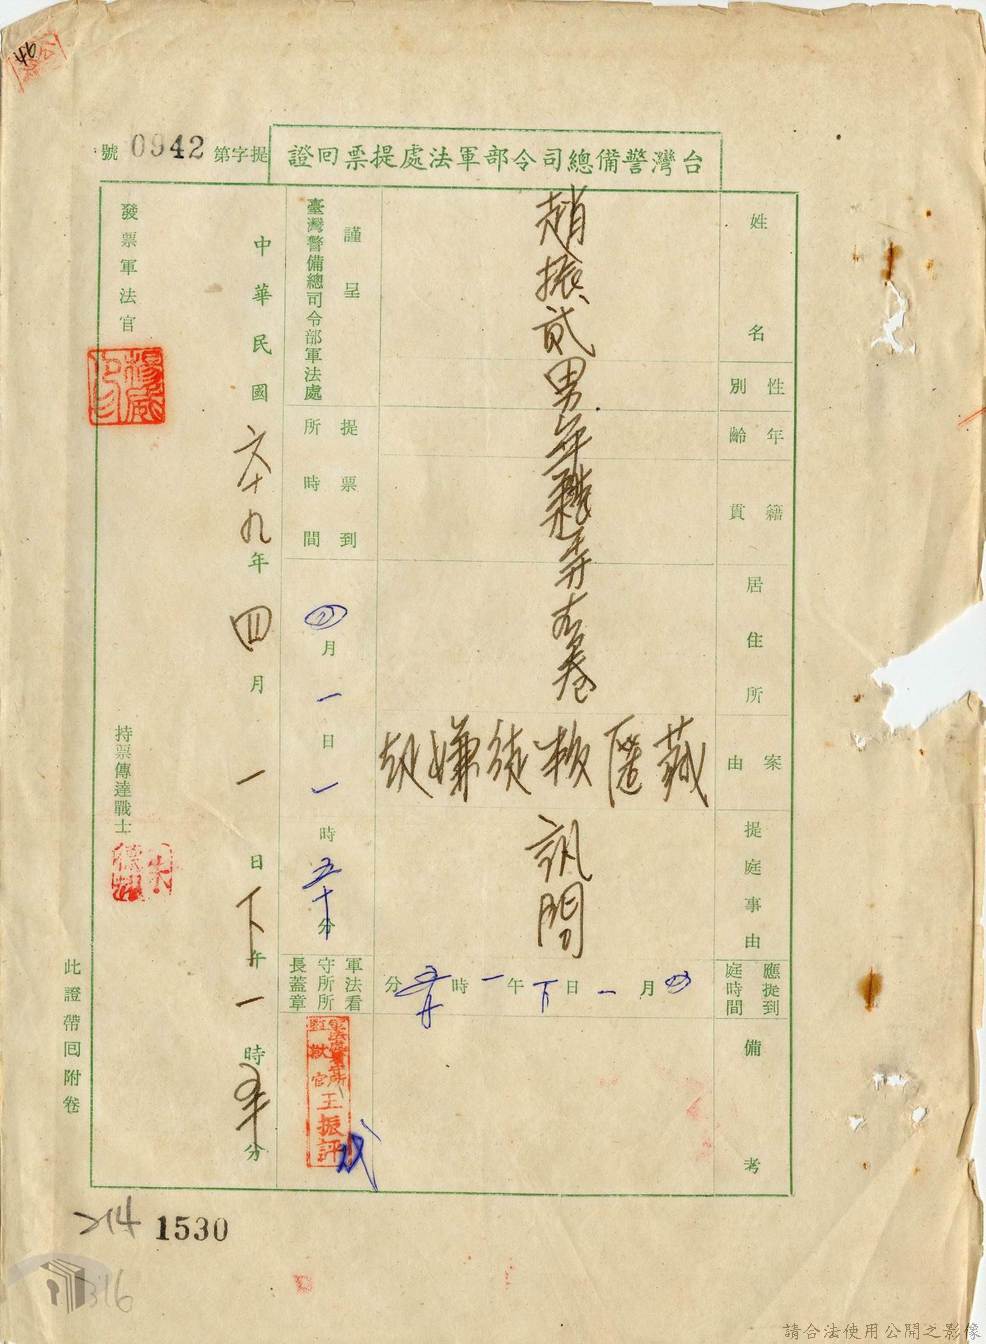 46
台灣警備總司令部軍法處提票回證
提字第0942號
姓名
趙振貳
性別
男
年齡
年
籍貫
籍
居住所
在卷
案由
藏匿叛徒嫌疑
提庭事由
訊問
應提到庭時間
四月一日下午一時五十分
備考
謹呈
臺灣警備總司令部軍法處
提票到所時間
四月一日一時五十分
軍法看守所所長蓋章
王振評
中華民國六十九年四月一日下午一時 分
發票軍法官
持票傳達戰士
此證帶回附卷
214
1530
316
請合法使用公開之影像